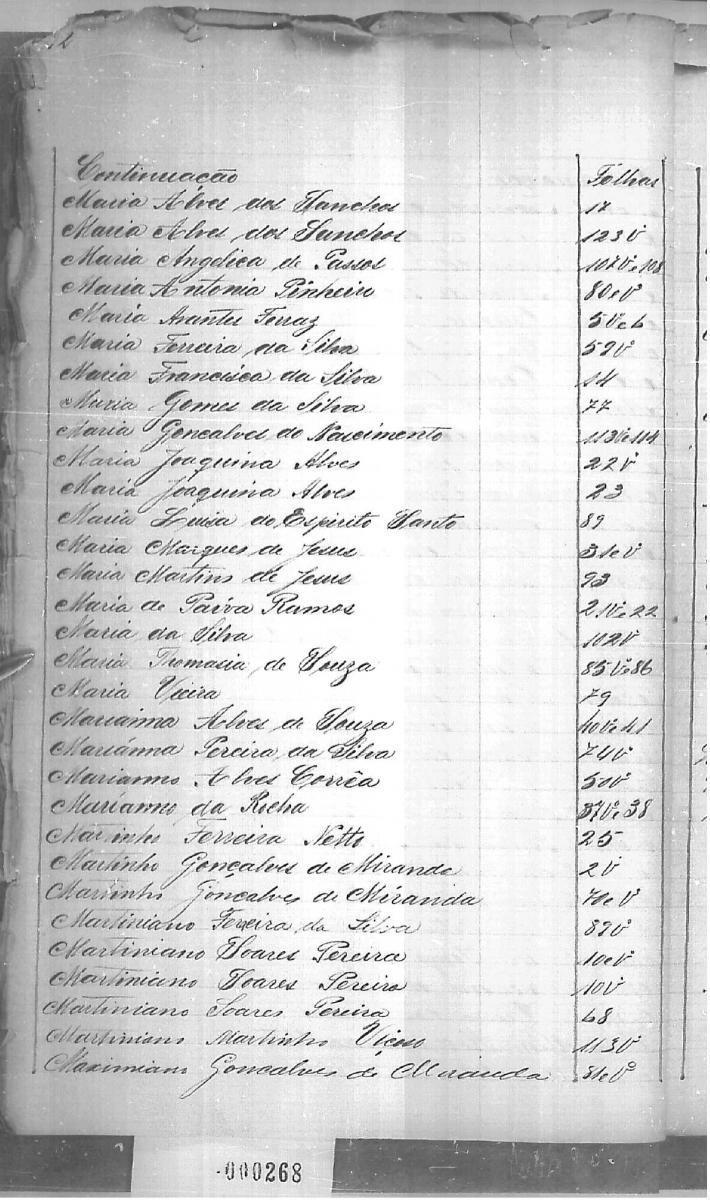 Continuação Folhas
Maria Alves dos Sanchos 17
Maria Alves dos Sanchos 123 v
Maria Angelica de Passos 107 v e 108
Maria Antonia Pinheiro 80 e v
Maria Arantes Ferraz 5 v e 6
Maria Ferreira da Silva 59 v
Maria Francisca da Silva 14
Maria Gomes da Silva 77
Maria Goncalves do Nascimento 113 v e 114
Maria Joaquina Alves 22 v
Maria Joaquina Alves 23
Maria Luiza do Espirito Santo 89
Maria Marques de Jesus 31 e v
Maria Martins de Jesus 93
Maria de Paiva Ramos 21 v e 22
Maria da Silva 102 v
Maria Thomasia de Souza 85 v e 86
Maria Vieira 79
Marianna Alves de Souza 40 v e 41
Marianna Pereira da Silva 74 v
Marianno Alves Corrêa 50 v
Marianno da Rocha 37 v e 38
Martinho Ferreira Netto 25
Martinho Gonçalves de Mirande 2 v
Martinho Gonçalves de Miranda 70 e v
Martiniano Ferreira da Silva 89 v
Martiniano Soares Pereira 10 e v
Martiniano Soares Pereira 10 v
Martiniano Soares Pereira 68
Martiniano Martinho Viçoso 113 v
Maximiano Goncalves de Miranda 81 e v
000268